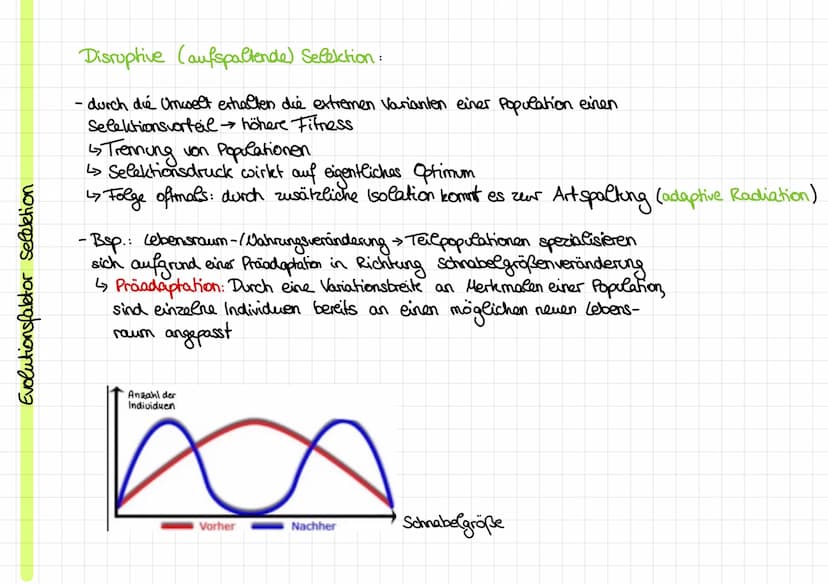 Evolutionsfaktor Selektion
Disruptive (aufspaltende) Selektion:
- durch die Umwelt erhalten die extremen Varianten einer Population einen
Selektionsvorteil → höhere Fitness
↳ Trennung von Populationen
↳ Selektionsdruck wirkt auf eigentliches Optimum
↳ Folge oftmals: durch zusätzliche Isolation kommt es zur Artspaltung (adaptive Radiation)
- Bsp.: Lebensraum-/Nahrungsveränderung → Teilpopulationen spezialisieren
sich aufgrund einer Präadaptation in Richtung Schnabelgrößenveränderung
↳ Präadaptation: Durch eine Variationsbreite an Merkmalen einer Population,
sind einzelne Individuen bereits an einen möglichen neuen Lebens-
raum angepasst
Anzahl der
Individuen
Vorher Nachher
Schnabelgröße